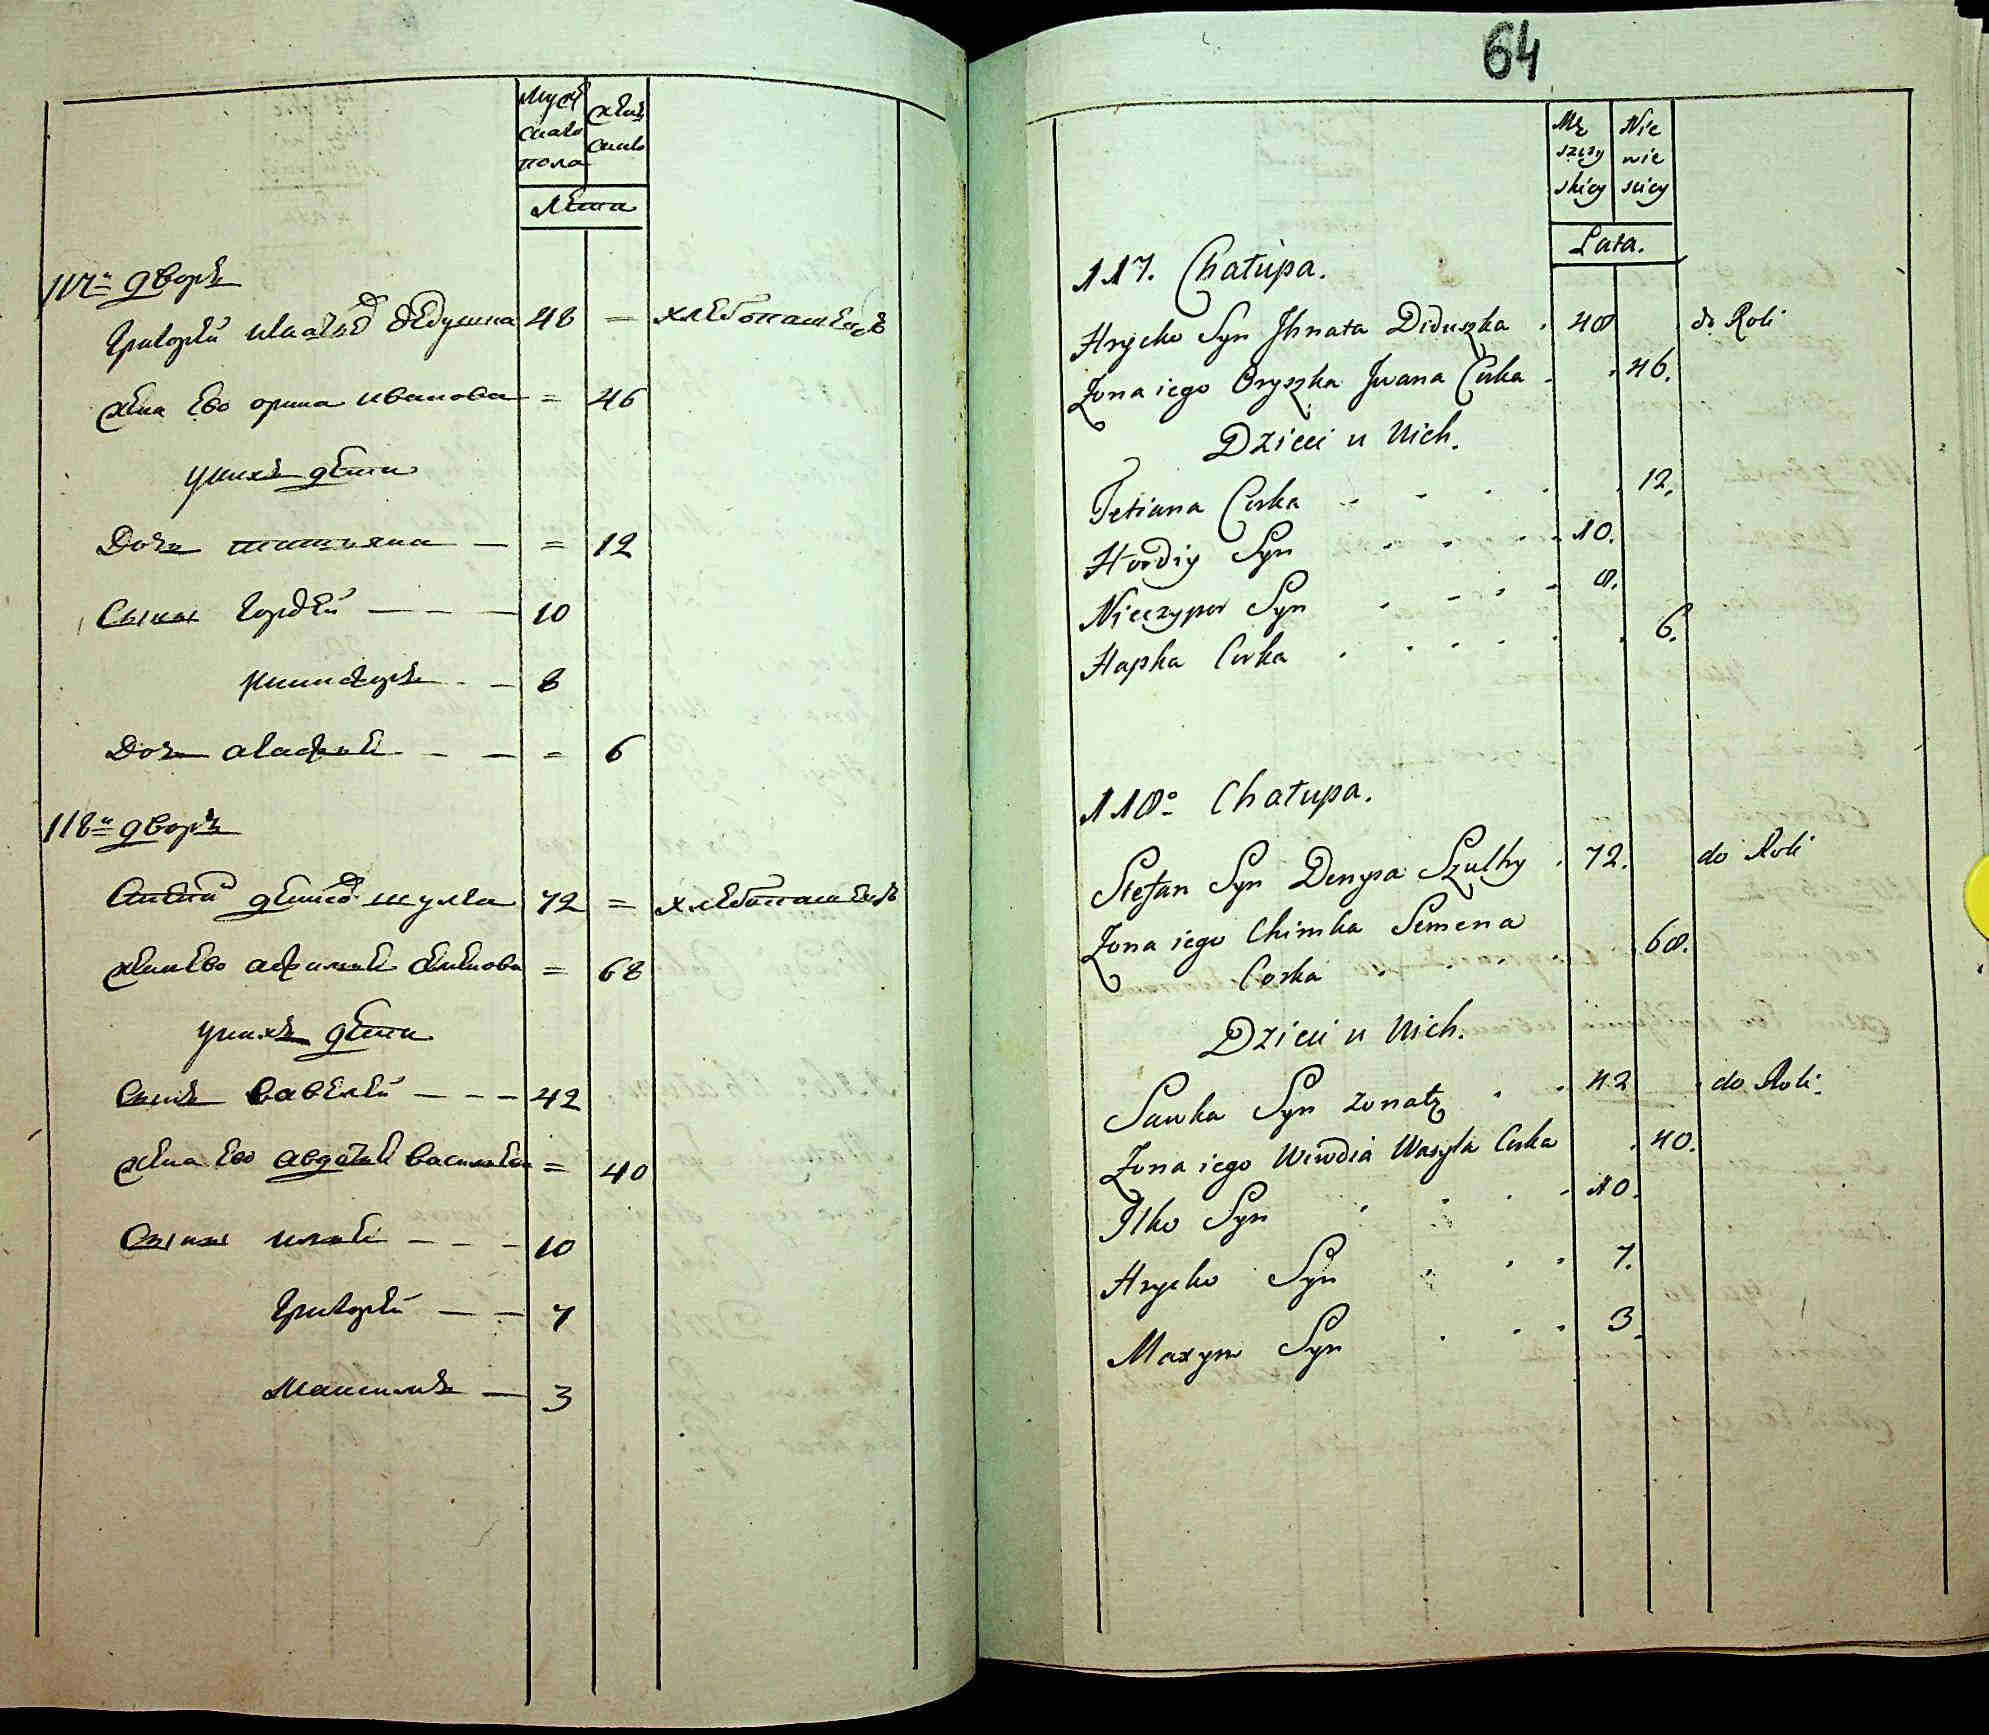 Муж
скаго
пола
жен
скаго
Лета
117й дворъ
Григорей игнатов дедушка 48 = хлебопашець
жена Ево орина иванова = 46
у нихъ дети
Дочь татьяна — = 12
Сыны гордей — — — 10
никифоръ - — 8
Дочь агафия — — = 6
118й дворъ
Степан денисов шулга 72 = хлебопашець
жена Ево афимия семенова = 68
у нихъ дети
Сынъ савелей — — — 42
жена Ево авдотия васильева = 40
Сыны илья — — — 10
Григорей — — 7
Максимъ — 3
64
Mę
szczy
skiey
Nie
wie
sciey
Lata.
117. Chałupa.
Hrycko Syn Jhnata Diduszka . 48 . do Roli
Żona iego Oryszka Jwana Curka . . 46.
Dzieci u Nich.
Tetiana Curka . . . . . 12.
Hordiy Syn . . . . 10.
Nieczypor Syn . . . . 8.
Hapka Curka . . . . . . 6.
118o Chałupa.
Stefan Syn Denysa Szulhy . 72. do Roli
Żona iego Chimka Semena
Corka . . . . 68.
Dzieci u Nich.
Sawka Syn zonaty . . 42 . do Roli.
Żona iego Wiwdia Wasyla Curka . 40.
Jlko Syn . . . . 10.
Hrycko Syn . . . 7.
Maxym Syn . . . 3.